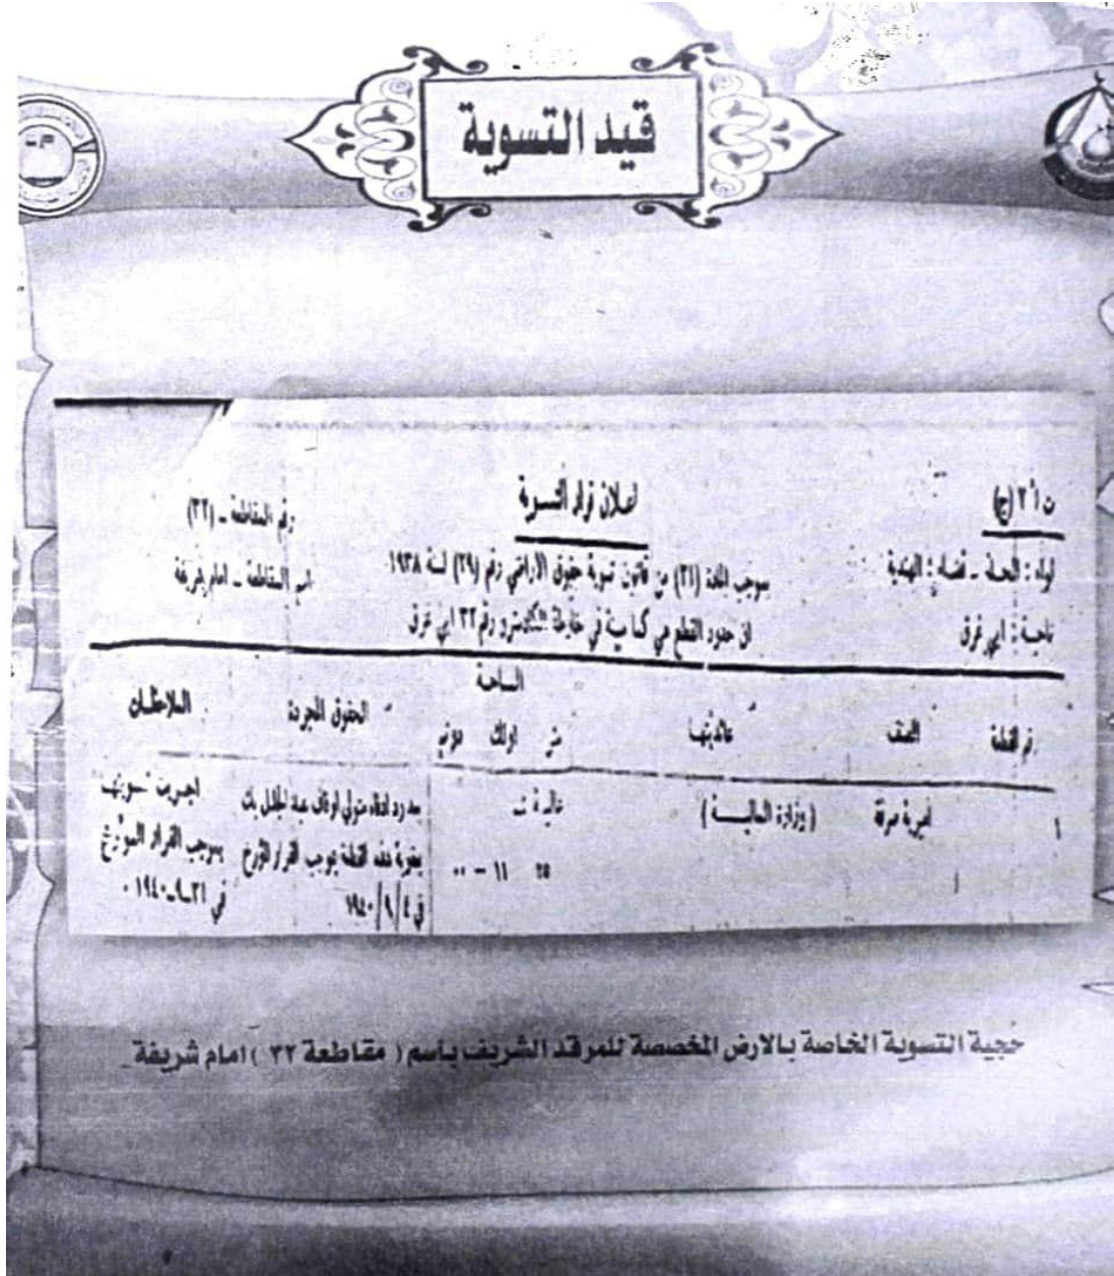 قيد التسوية
ت أ ٣ (ج)
اعلان قرار التسوية
رقم المقاطعة ــ (٣٢)
لواء : الحلة ــ قضاء : الهندية
بموجب المادة (٢١) من قانون تسوية حقوق الاراضي رقم (٢٩) لسنة ١٩٣٨
اسم المقاطعة ــ امام شريفة
ناحية : ابي غرق
ان حدود القطع هي كما مبينة في خارطة الكادسترو رقم ٣٢ ابي غرق
المساحة
رقم القطعة
الصنف
عائديتها
متر اولك دونم
الحقوق المجردة
الملاحظات
١
اميرية صرفة
(وزارة المالية)
٢٥ ١١ ــ ٠٠
رد ادعاء متولي اوقاف عبد الجليل بك
هذه القطعة بموجب القرار المؤرخ
في ١٩٤٠/٩/٤
اجريت تسويتها
بموجب القرار المؤرخ
في ٢١ــ٩ــ١٩٤٠ ٠
حجية التسوية الخاصة بالارض المخصصة للمرقد الشريف باسم ( مقاطعة ٣٢ ) امام شريفة